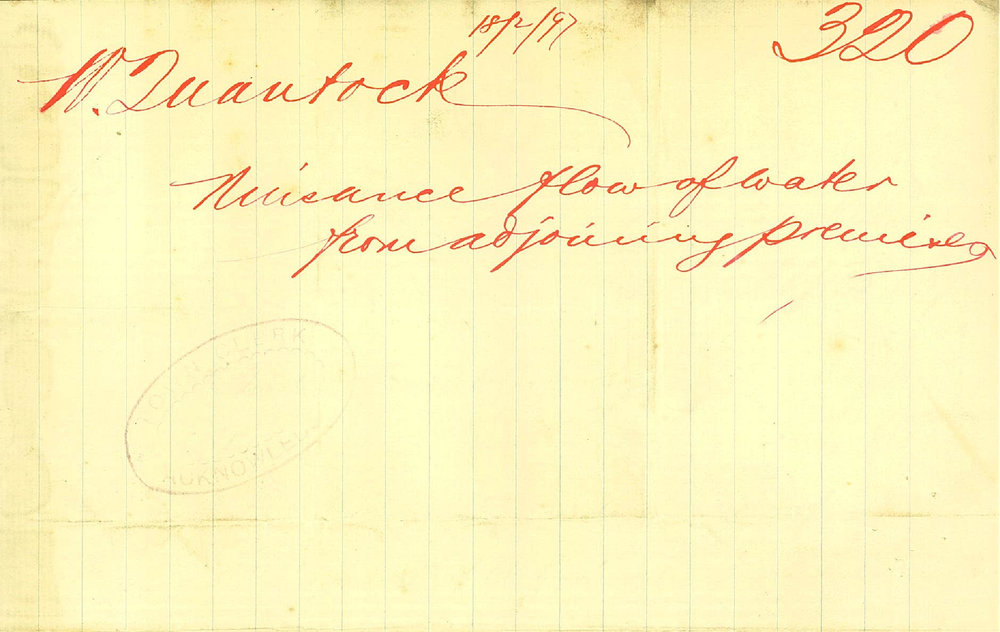 18/2/97
320
W. Quantock
Nuisance flow of water
from adjoining premises
TOWN CLERK
ACKNOWLED